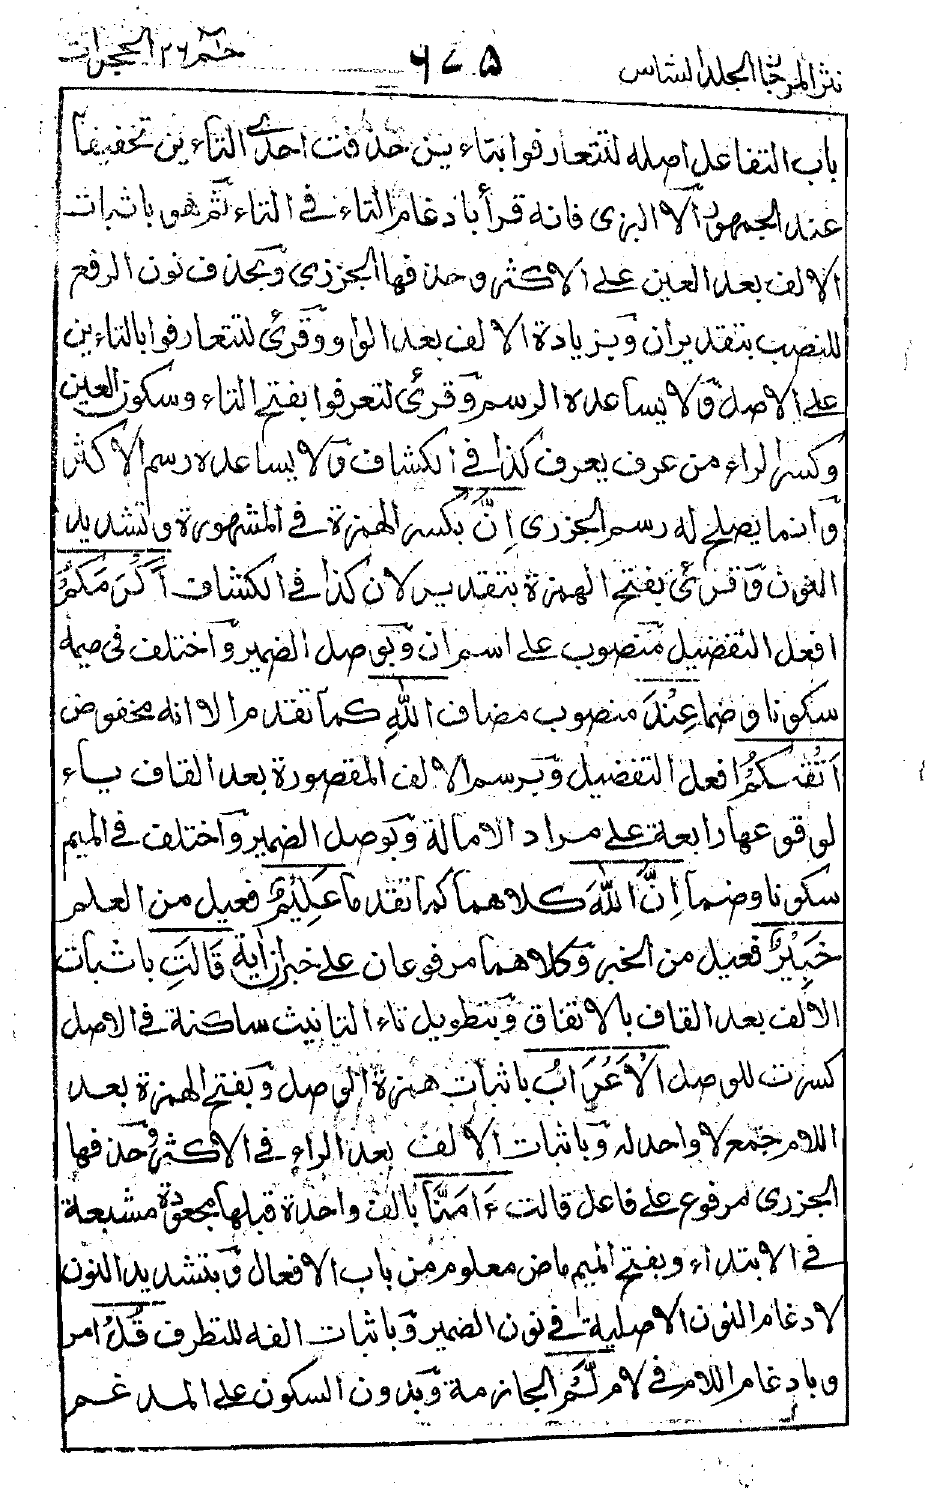 نثر المرجان المجلد السادس ٦٧٥ حٰم ٢٦ الحجرات
باب التفاعل اصله لتتعارفوا بتاءين حذفت احدى التاءين تخفيفا
عند الجمهور الا البزى فانه قرأ بادغام التاء فى التاء ثم هو باثبات
الالف بعد العين على الاكثر وحذفها الجزرى وبحذف نون الرفع
للنصب بتقدير ان وبزيادة الالف بعد الواو وقرئ لتتعارفوا بالتاءين
على الاصل ولا يساعده الرسم وقرئ لتعرفوا بفتح التاء وسكون العين
وكسر الراء من عرف يعرف كذا فى الكشاف ولا يساعده رسم الاكثر
وانما يصلح له رسم الجزرى اِنَّ بكسر الهمزة فى المشهورة وتشديد
النون وقرئ بفتح الهمزة بتقدير لان كذا فى الكشاف اَكْرَمَكُمْ
افعل التفضيل منصوب على اسم ان وبوصل الضمير واختلف فى ميمه
سكونا وضما عِنْدَ منصوب مضاف اللّٰهِ كما تقدم الا انه مخفوض
اَتْقٰىكُمْ افعل التفضيل وبرسم الالف المقصورة بعد القاف ياء
لوقوعها رابعة على مراد الامالة وبوصل الضمير واختلف فى الميم
سكونا وضما اِنَّ اللّٰهَ كلاهما كما تقدما عَلِيْمٌ فعيل من العلم
خَبِيْرٌ فعيل من الخبر وكلاهما مرفوعان على خبر ان اٰية قَالَتِ باثبات
الالف بعد القاف بالاتفاق وبتطويل تاء التانيث ساكنة فى الاصل
كسرت للوصل الْاَعْرَابُ باثبات همزة الوصل وبفتح الهمزة بعد
اللام جمع لا واحد له وباثبات الالف بعد الراء فى الاكثر وحذفها
الجزرى مرفوع على فاعل قالت ءَامَنَّا بالف واحدة قبلها مجعودة مشبعة
فى الابتداء وبفتح الميم ماض معلوم من باب الافعال وبتشديد النون
لادغام النون الاصلية فى نون الضمير وباثبات الفه للتطرف قُلْ امر
وبادغام اللام فى لام لَّمْ الجازمة وبدون السكون على المدغم